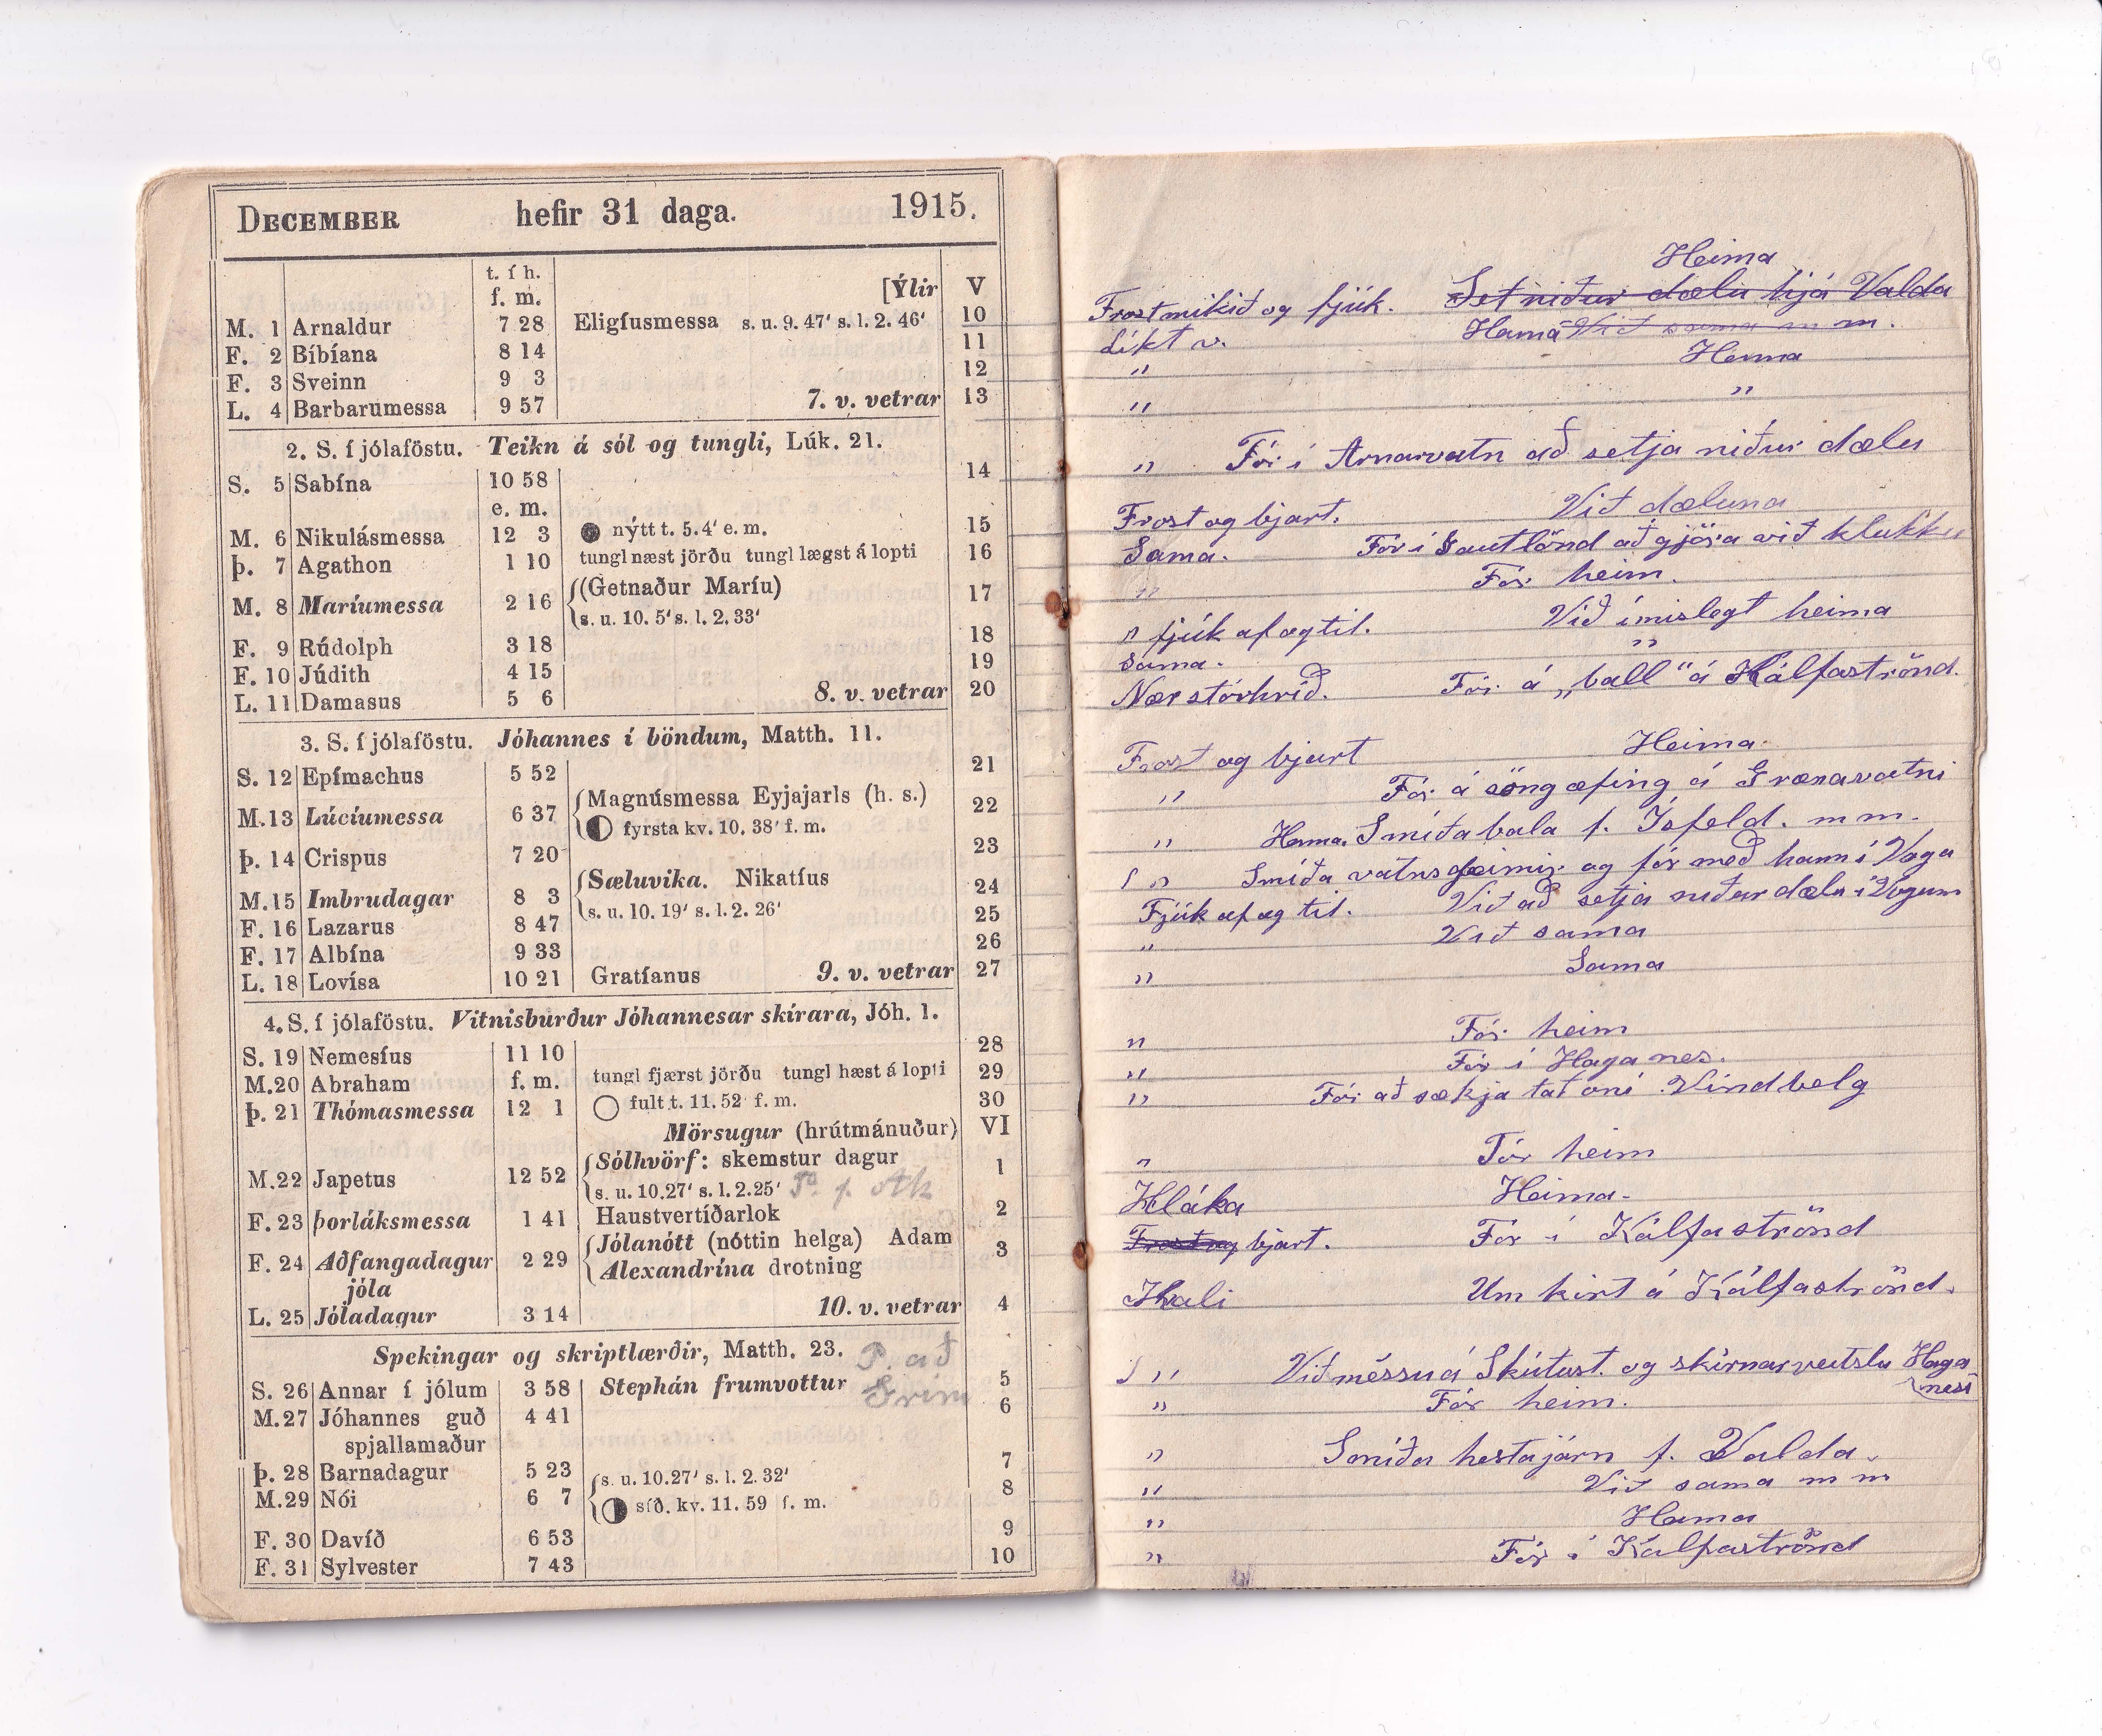 DECEMBER hefir 31 daga. 1915.
t. í h.
f. m. [Ýlir V
M. 1 Arnaldur 7 28 Eligíusmessa s. u. 9. 47' s. l. 2. 46' 10
F. 2 Bíbíana 8 14 11
F. 3 Sveinn 9 3 12
L. 4 Barbarumessa 9 57 7. v. vetrar 13
2. S. í jólaföstu. Teikn á sól og tungli, Lúk. 21.
S. 5 Sabína 10 58 14
e. m.
M. 6 Nikulásmessa 12 3 nýtt t. 5.4' e. m. 15
Þ. 7 Agathon 1 10 tungl næst jörðu tungl lægst á lopti 16
M. 8 Maríumessa 2 16 (Getnaður Maríu) 17
s. u. 10. 5' s. l. 2. 33'
F. 9 Rúdolph 3 18 18
F. 10 Júdith 4 15 19
L. 11 Damasus 5 6 8. v. vetrar 20
3. S. í jólaföstu. Jóhannes í böndum, Matth. 11.
S. 12 Epímachus 5 52 21
M. 13 Lúcíumessa 6 37 Magnúsmessa Eyjajarls (h. s.) 22
fyrsta kv. 10. 38' f. m.
Þ. 14 Crispus 7 20 23
M. 15 Imbrudagar 8 3 Sæluvika. Nikatíus 24
s. u. 10. 19' s. l. 2. 26'
F. 16 Lazarus 8 47 25
F. 17 Albína 9 33 26
L. 18 Lovísa 10 21 Gratíanus 9. v. vetrar 27
4. S. í jólaföstu. Vitnisburður Jóhannesar skírara, Jóh. 1.
S. 19 Nemesíus 11 10 28
M. 20 Abraham f. m. tungl fjærst jörðu tungl hæst á lopti 29
Þ. 21 Thómasmessa 12 1 fult t. 11. 52 f. m. 30
Mörsugur (hrútmánuður) VI
M. 22 Japetus 12 52 Sólhvörf: skemstur dagur 1
s. u. 10.27' s. l. 2.25'
F. 23 Þorláksmessa 1 41 Haustvertíðarlok 2
F. 24 Aðfangadagur jóla 2 29 Jólanótt (nóttin helga) Adam 3
Alexandrína drotning
L. 25 Jóladagur 3 14 10. v. vetrar 4
Spekingar og skriptlærðir, Matth. 23.
S. 26 Annar í jólum 3 58 Stephán frumvottur 5
M. 27 Jóhannes guð 4 41 6
spjallamaður
Þ. 28 Barnadagur 5 23 7
M. 29 Nói 6 7 s. u. 10.27' s. l. 2. 32' 8
síð. kv. 11. 59 f. m.
F. 30 Davíð 6 53 9
F. 31 Sylvester 7 43 10
Heima
Frost mikið og fjúk. Set niður dælu hjá Valda
Líkt v. Heima Við sama m m.
" Heima
" "
" Fór í Arnarvatn að setja niður dælu
Frost og bjart. Við dæluna
Sama. Fór í Gautlönd að gjöra við klukku
" Fór heim.
" fjúk af og til. Við ímislegt heima
Sama. "
Nær stórhríð. Fór á „ball" á Kálfaströnd.
Frost og bjart Heima.
" Fór á söngæfing á Grænavatni
" Heima. Smíða bala f. Ísfeld. m m.
" Smíða vatnsgeimir og fór með hann í Voga
Fjúk af og til. Við að setja niður dælu í Vogum
" Við sama
" Sama
" Fór heim
" Fór í Haganes.
" Fór að sækja tað oní Vindbelg
" Fór heim
Hláka Heima.
Frost og bjart. Fór í Kálfaströnd
Kali Um kirt á Kálfaströnd.
" Við messu á Skútust. og skírnarveitslu Haga
nesi
" Fór heim.
" Smíða hestajárn f. Valda.
" Við sama m m
" Heima
" Fór í Kálfaströnd